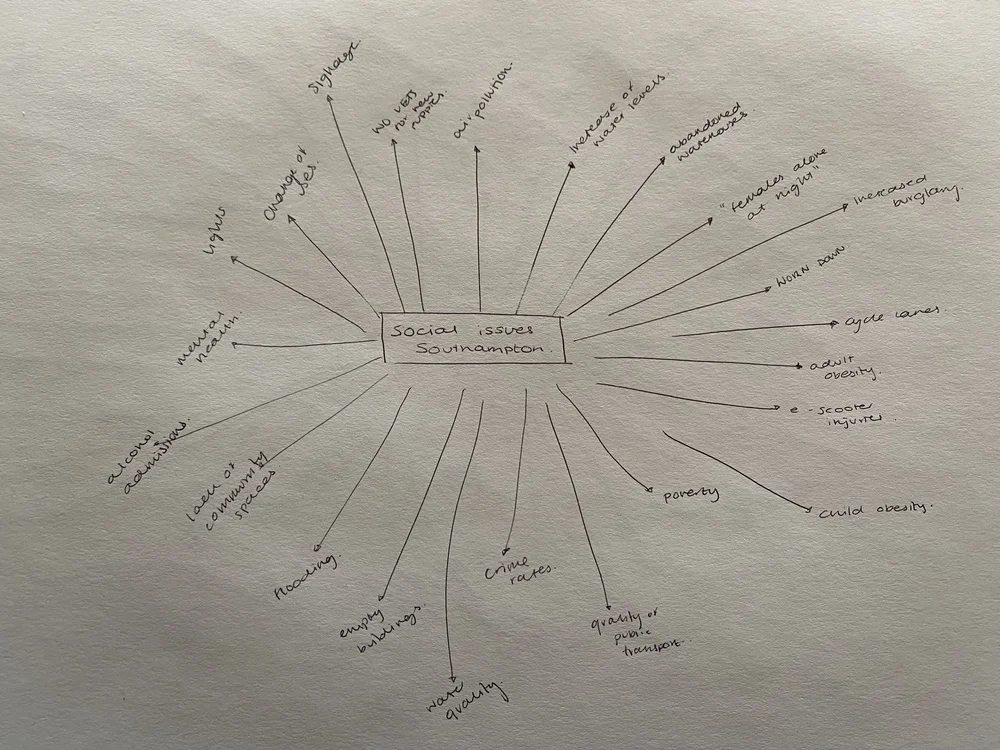 Social issues
Southampton.
signage.
NO VETS
for new
puppies.
air pollution.
increase of
water levels.
abandoned
warehouses.
"females alone
at night"
increased
burglary.
WORN DOWN
cycle lanes
adult
obesity.
e-scooter
injuries.
child obesity.
poverty
quality of
public
transport.
crime
rates.
water
quality
empty
buildings.
flooding.
lack of
community
spaces
alcohol
admissions.
mental
health.
lights
change of
uses.